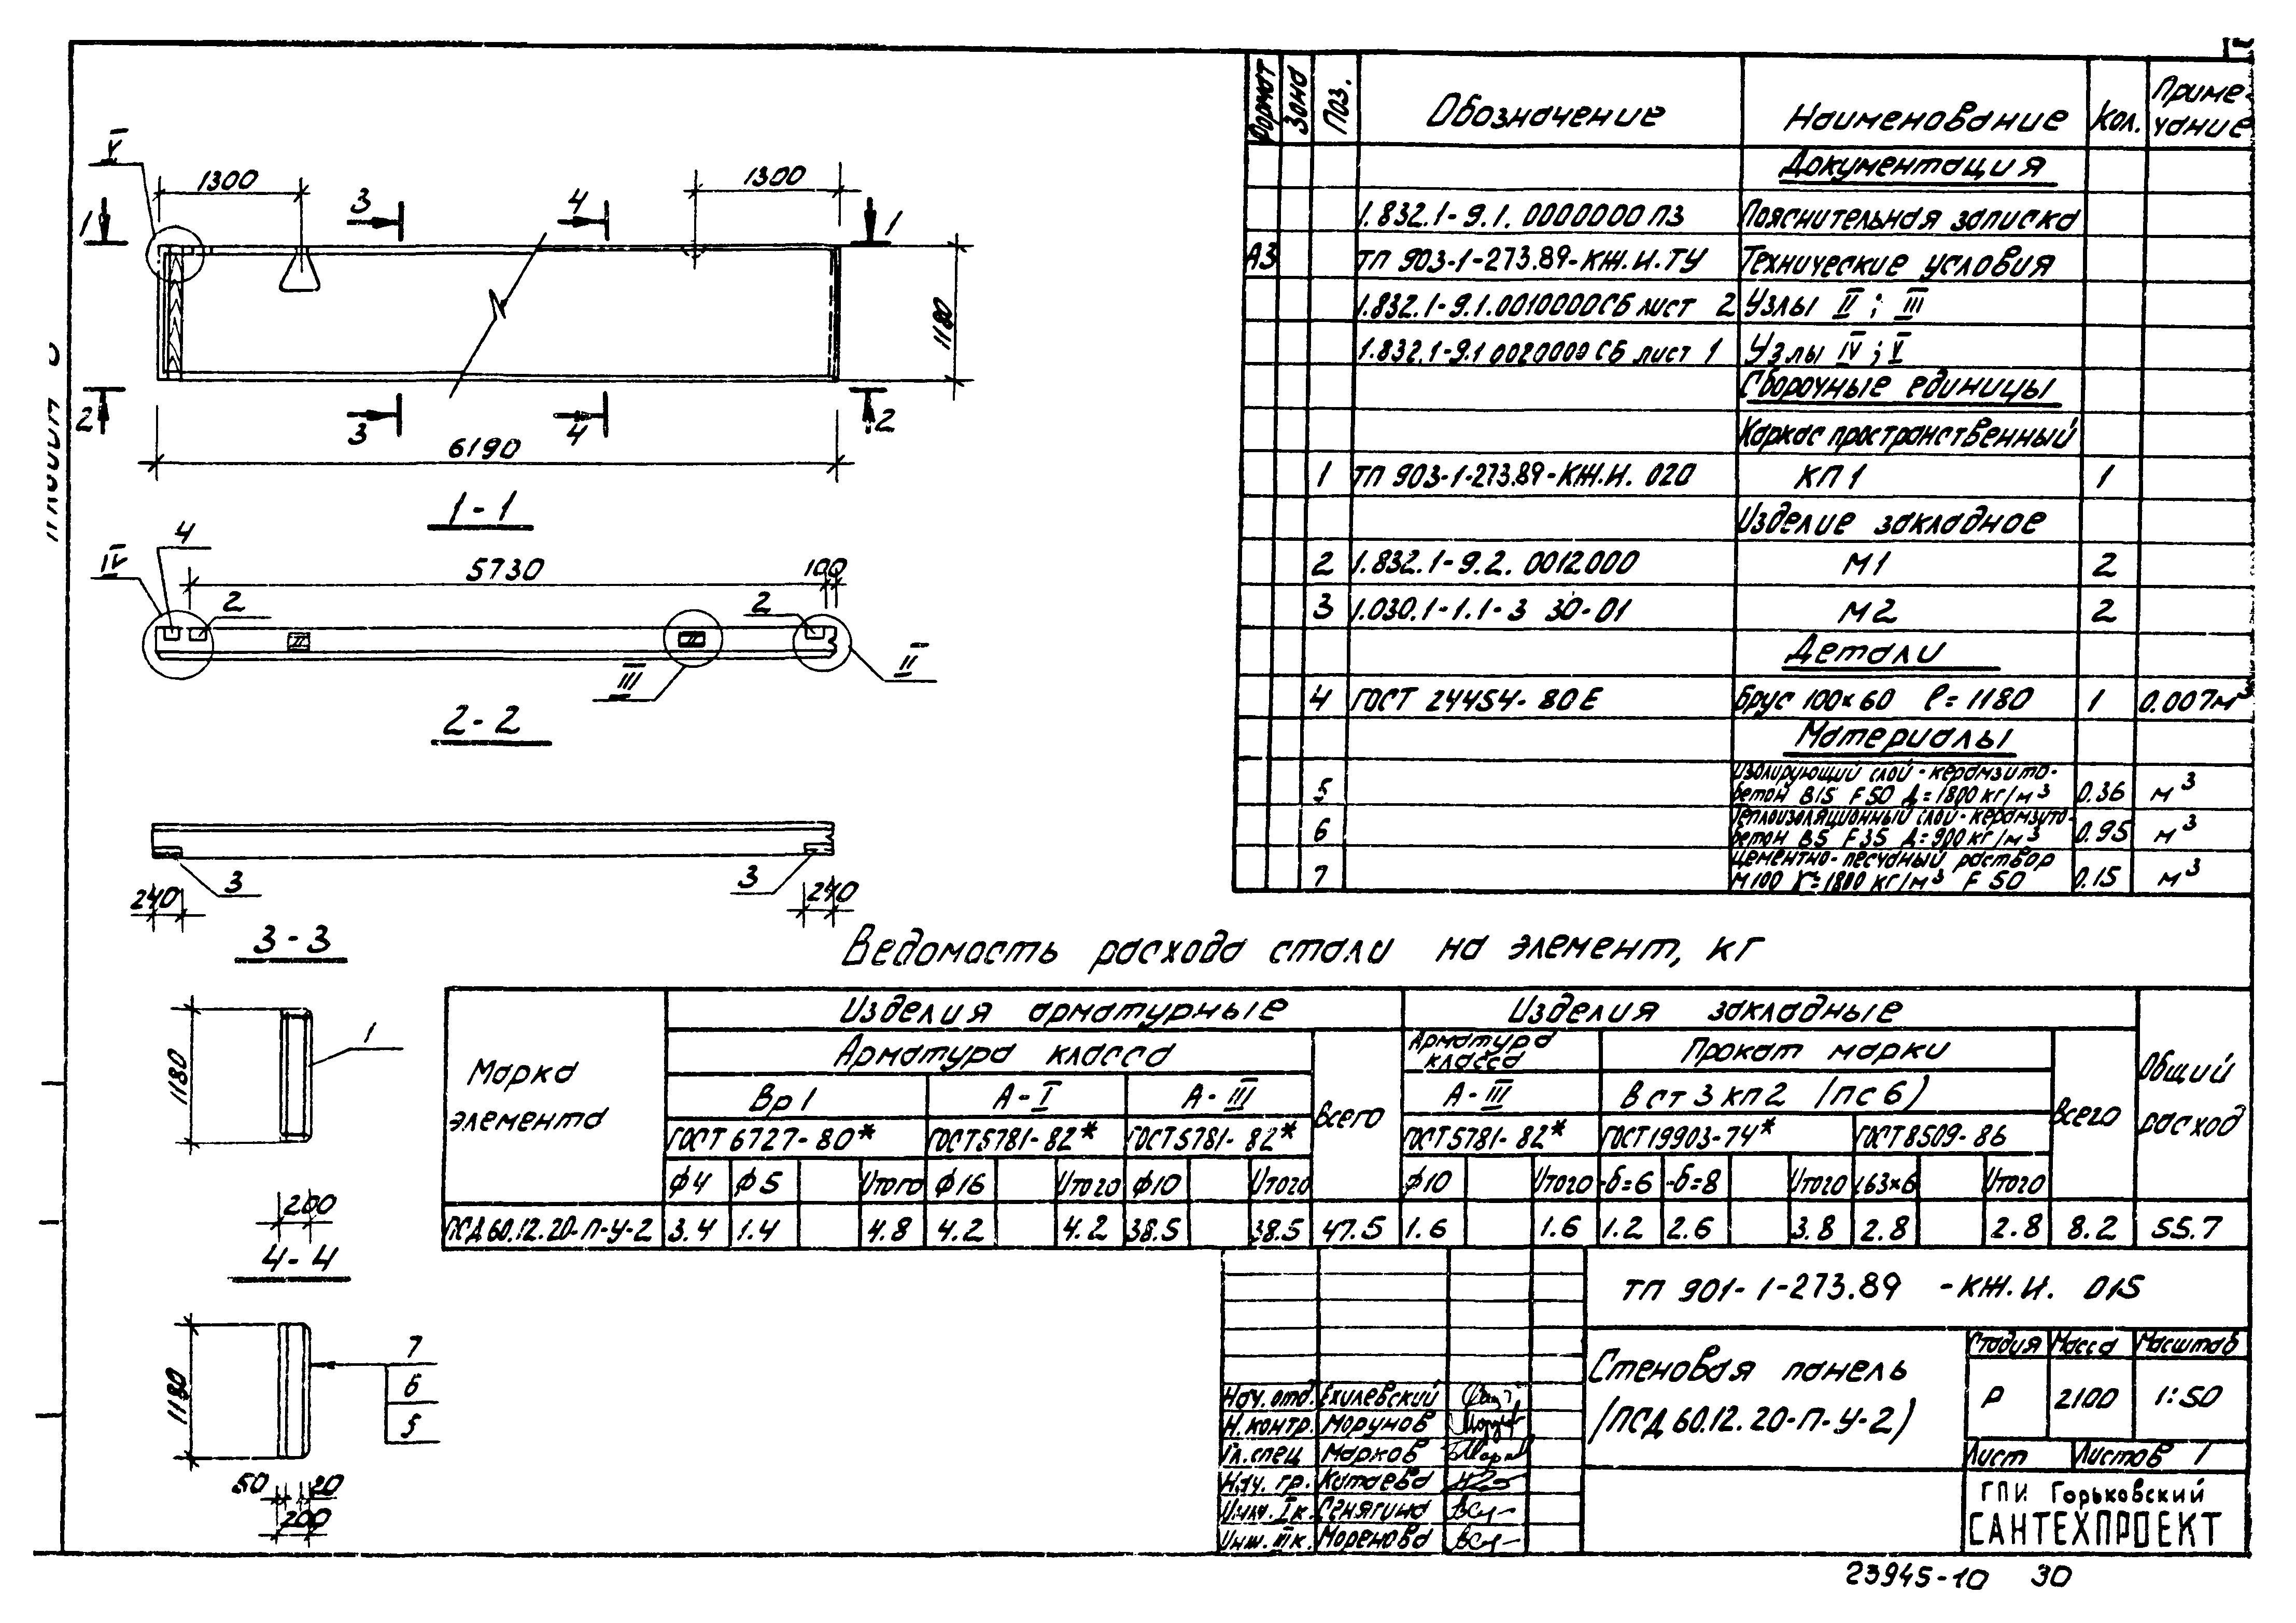 V
1300
1300
3
4
1
1
1180
2
3
4
2
6190
1-1
4
IV
5730
100
2
2
II
III
2-2
3
3
240
240
3-3
1
1180
200
4-4
1180
7
6
5
50
20
200
Формат
Зона
Поз.
Обозначение
Наименование
Кол.
Приме-
чание
Документация
1.832.1-9.1. 0000000 ПЗ Пояснительная записка
А3 ТП 903-1-273.89-КЖ.И.ТУ Технические условия
1.832.1-9.1.0010000СБ лист 2 Узлы II ; III
1.832.1-9.1 0020000 СБ лист 1 Узлы IV ; V
Сборочные единицы
Каркас пространственный
1 ТП 903-1-273.89-КЖ.И. 020 КП 1 1
Изделие закладное
2 1.832.1-9.2. 0012000 М1 2
3 1.030.1-1.1-3 30-01 М2 2
Детали
4 ГОСТ 24454-80 Е Брус 100×60 ℓ=1180 1 0.007м³
Материалы
Изолирующий слой-керамзито-
5 бетон В15 F50 Д=1800 кг/м³ 0.36 м³
Теплоизоляционный слой-керамзито-
6 бетон В5 F35 Д=900 кг/м³ 0.95 м³
Цементно-песчаный раствор
7 М100 γ=1800 кг/м³ F 50 0.15 м³
Ведомость расхода стали на элемент, кг
Марка
элемента
Изделия арматурные
Изделия закладные
Общий
расход
Арматура класса
Всего
Арматура
класса
Прокат марки
Всего
Вр1 А-I А-III А-III В ст 3 кп 2 (пс 6)
ГОСТ 6727-80* ГОСТ 5781-82* ГОСТ 5781-82* ГОСТ 5781-82* ГОСТ 19903-74* ГОСТ 8509-86
ф4 ф5 Итого ф16 Итого ф10 Итого ф10 Итого -δ=6 -δ=8 Итого L63×6 Итого
ПСД 60.12.20-П-У-2 3.4 1.4 4.8 4.2 4.2 38.5 38.5 47.5 1.6 1.6 1.2 2.6 3.8 2.8 2.8 8.2 55.7
ТП 901-1-273.89 -КЖ.И. 015
Стеновая панель
(ПСД 60.12.20-П-У-2)
Стадия Масса Масштаб
Р 2100 1:50
Лист Листов 1
ГПИ Горьковский
САНТЕХПРОЕКТ
Нач. отд. Ехилевский
Н. контр. Морунов
Гл. спец Марков
Нач. гр. Катаева
Инж. I к. Сенягина
Инж. III к. Моренова
23945-10 30